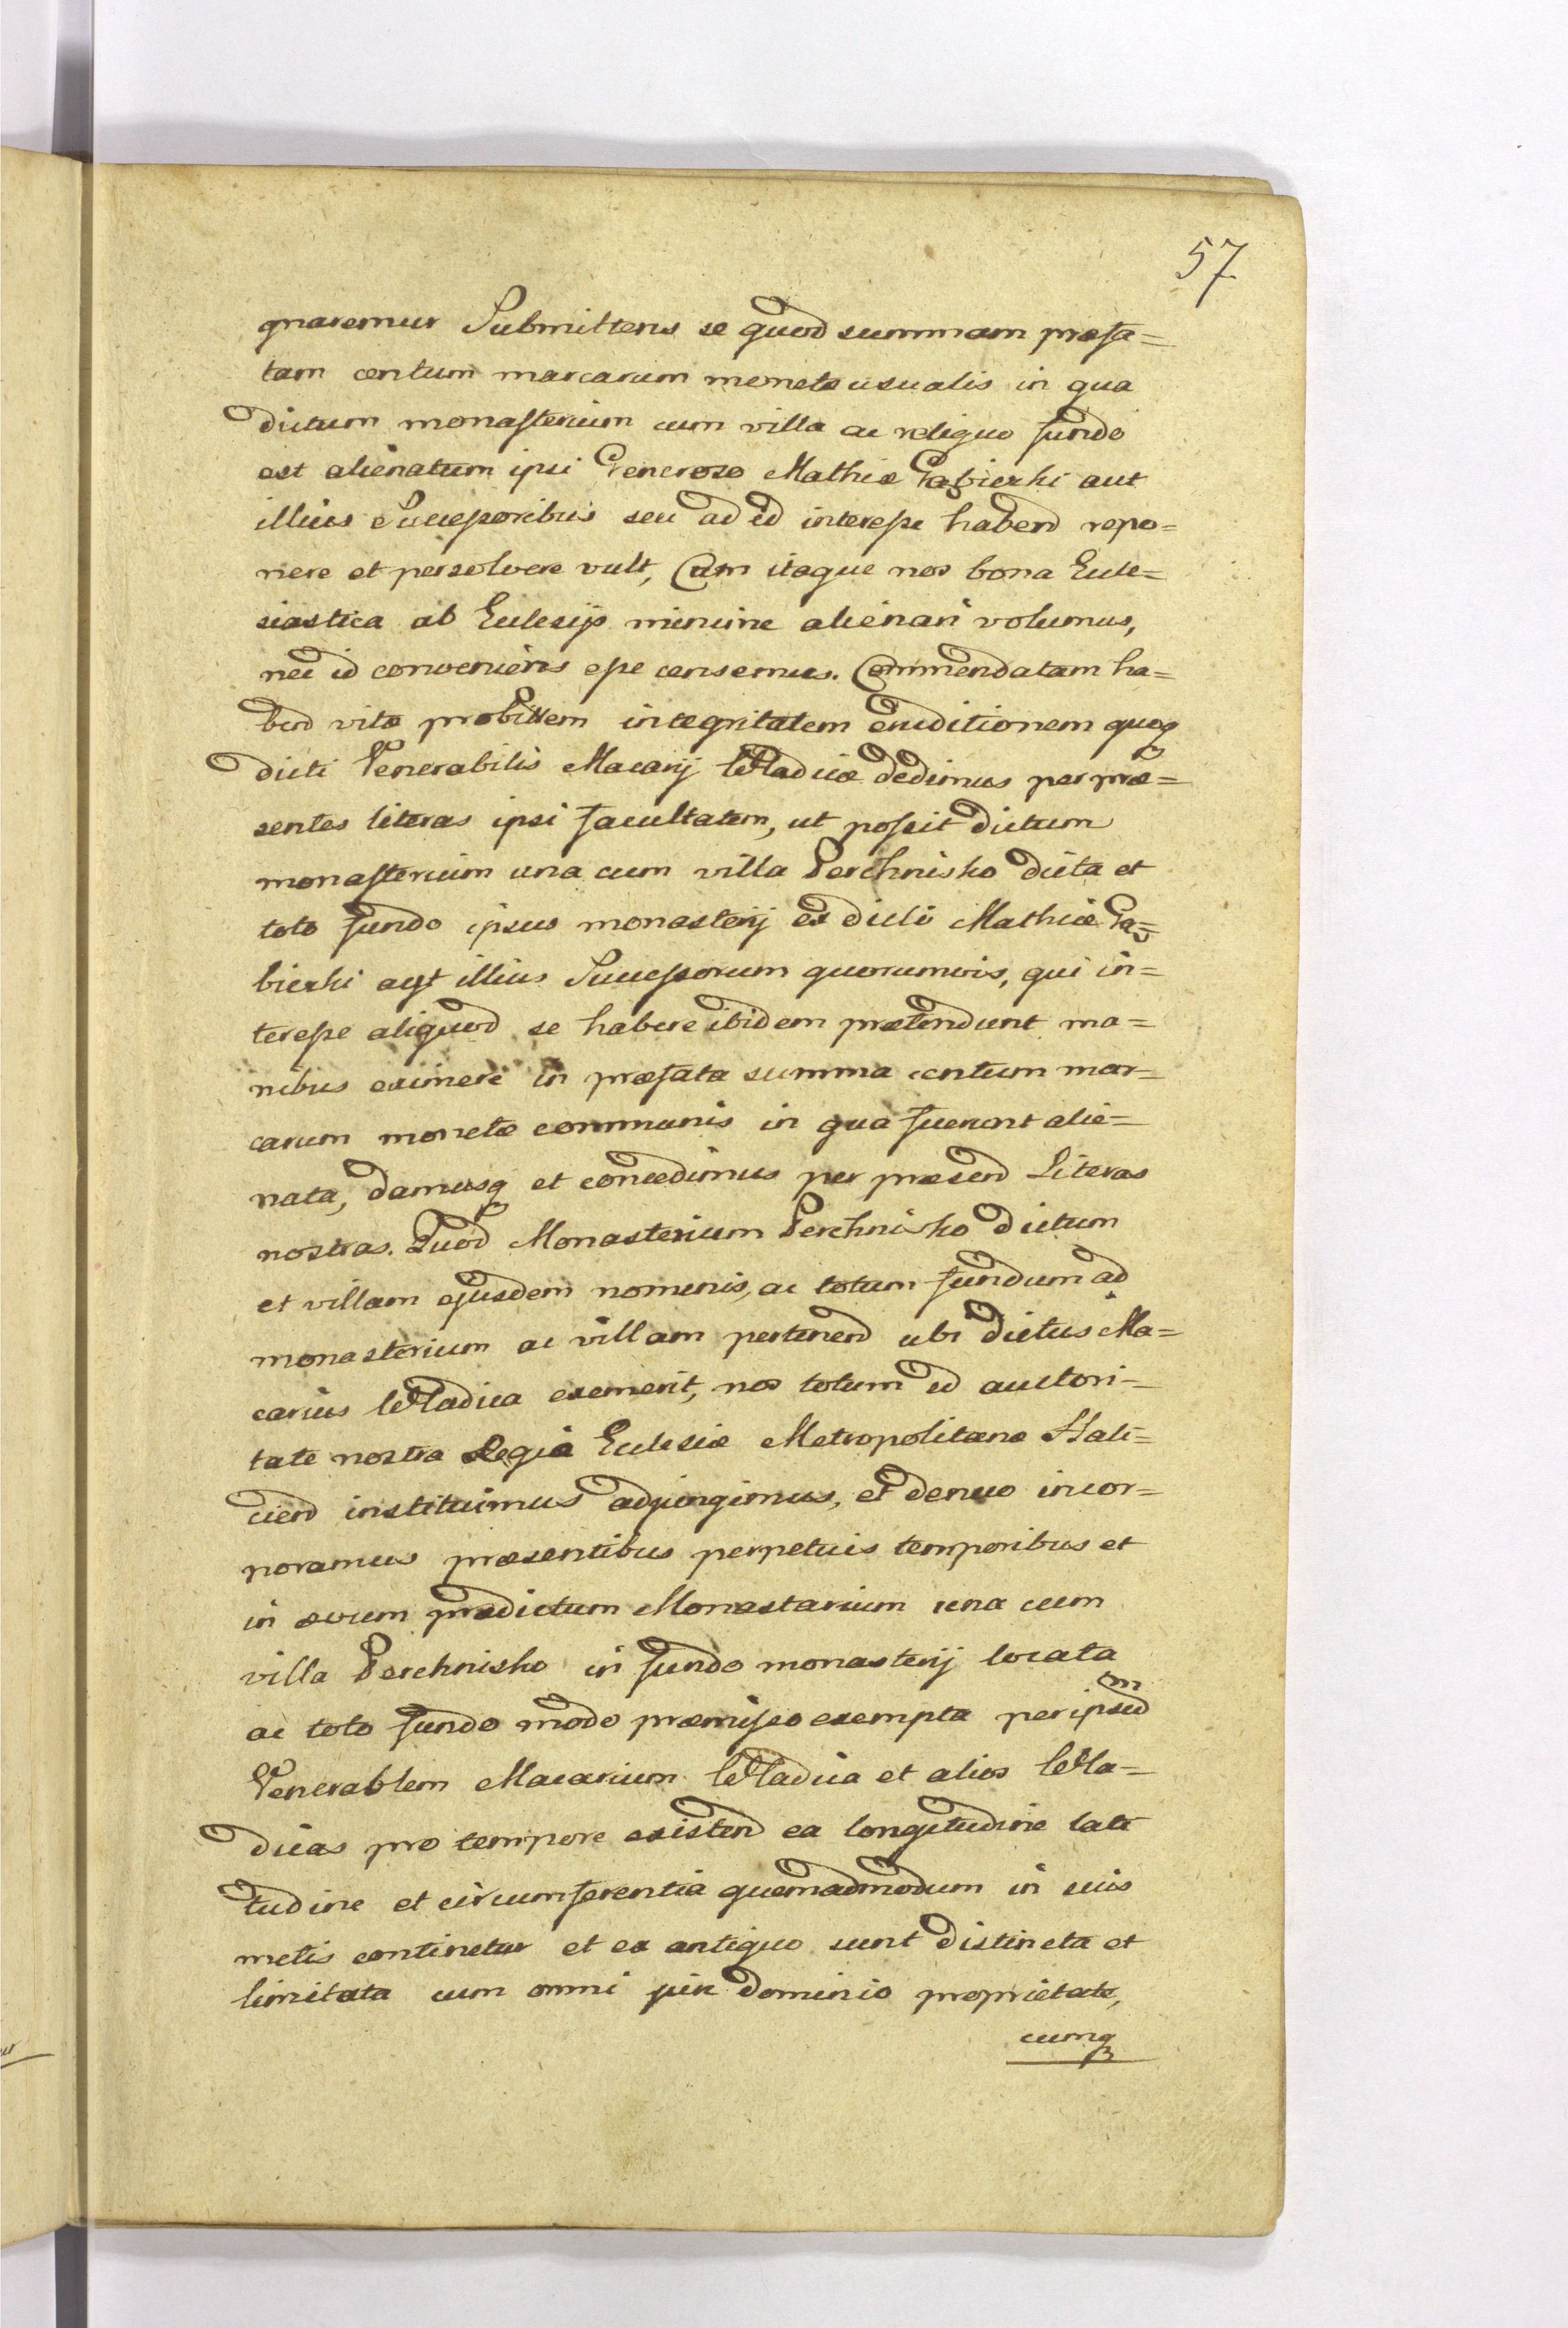 57
gnaremur Submittens se quod summam præfa=
tam centum marcarum monetæ usualis in qua
dictum monasterium cum villa ac reliquo fundo
est alienatum ipsi Generoso Mathiæ Gabierki aut
illius Successoribus seu ad id interesse habend repo=
nere et persolvere vult, Cum itaque nos bona Eccle=
siastica ab Eclesijs minime alienari volumus,
nec id conveniens esse censemus. Commendatam ha=
bend vitæ probittem integritatem eruditionem quoq
dicti Venerabilis Macarij Wladicæ dedimus per præ=
sentes literas ipsi facultatem, ut possit dictum
monasterium una cum villa Perehnisko dicta et
toto fundo ipsius monasterij ex dicti Mathiæ Ga=
bierki aut illius Successorum quorumvis, qui in=
teresse aliquod se habere ibidem prætendunt ma=
nibus eximere in præfata summa centum mar=
carum monetæ communis in qua fuerunt alie=
nata, damusq et concedimus per præsend Literas
nostras. Quod Monasterium Perehnisko dictum
et villam ejusdem nominis, ac totum fundum ad
monasterium ac villam pertinend ubi dictus Ma=
carius Wladica exemerit, nos totum id auctori=
tate nostra Regia Eclesiæ Metropolitanæ Hali=
ciend instituimus adjungimus, et denuo incor=
poramus præsentibus perpetuis temporibus et
in ævum prædictum Monastarium una cum
villa Perehnisko in fundo monasterij locata
ac toto fundo modo præmisso exempta per ipsud m
Venerablem Macarium Wladica et alios Wla=
dicas pro tempore existend ea longitudine lati
tudine et circumferentia quemadmodum in suis
metis continetur et ex antiquo sunt distincta et
limitata cum omni jure dominio proprietate,
cumq